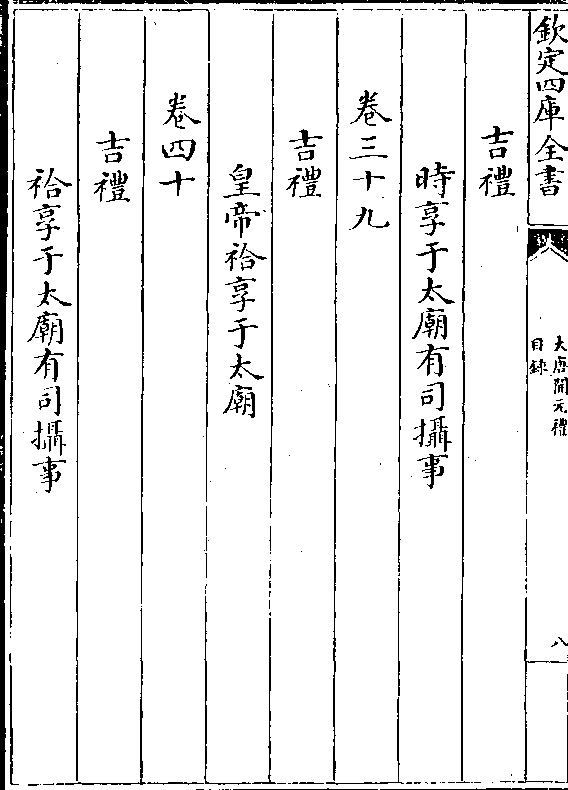 欽定四庫全書
大唐開元禮
目錄
八
吉禮
時享于太廟有司攝事
卷三十九
吉禮
皇帝祫享于太廟
卷四十
吉禮
祫享于太廟有司攝事